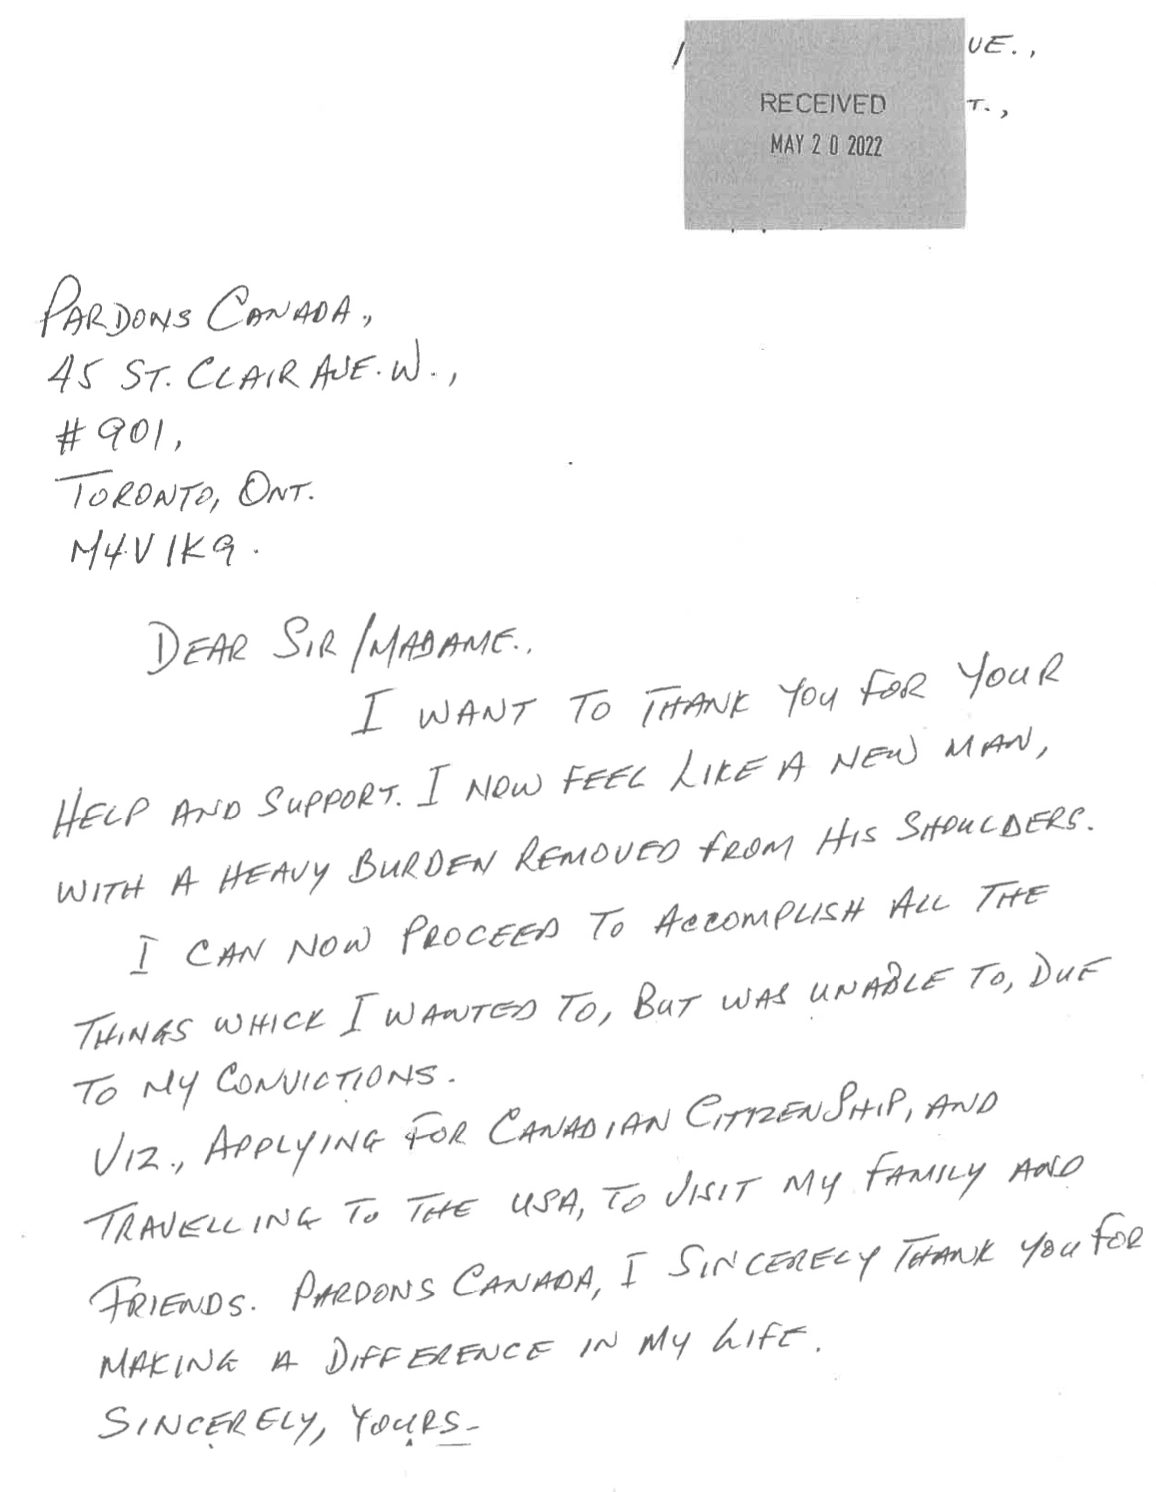 UE.,
RECEIVED
T.,
MAY 20 2022
PARDONS CANADA,
45 ST. CLAIR AVE. W.,
# 901,
TORONTO, ONT.
M4V 1K9.
DEAR SIR/MADAME.,
I WANT TO THANK YOU FOR YOUR
HELP AND SUPPORT. I NOW FEEL LIKE A NEW MAN,
WITH A HEAVY BURDEN REMOVED FROM HIS SHOULDERS.
I CAN NOW PROCEED TO ACCOMPLISH ALL THE
THINGS WHICH I WANTED TO, BUT WAS UNABLE TO, DUE
TO MY CONVICTIONS.
VIZ., APPLYING FOR CANADIAN CITIZENSHIP, AND
TRAVELLING TO THE USA, TO VISIT MY FAMILY AND
FRIENDS. PARDONS CANADA, I SINCERELY THANK YOU FOR
MAKING A DIFFERENCE IN MY LIFE.
SINCERELY, YOURS-